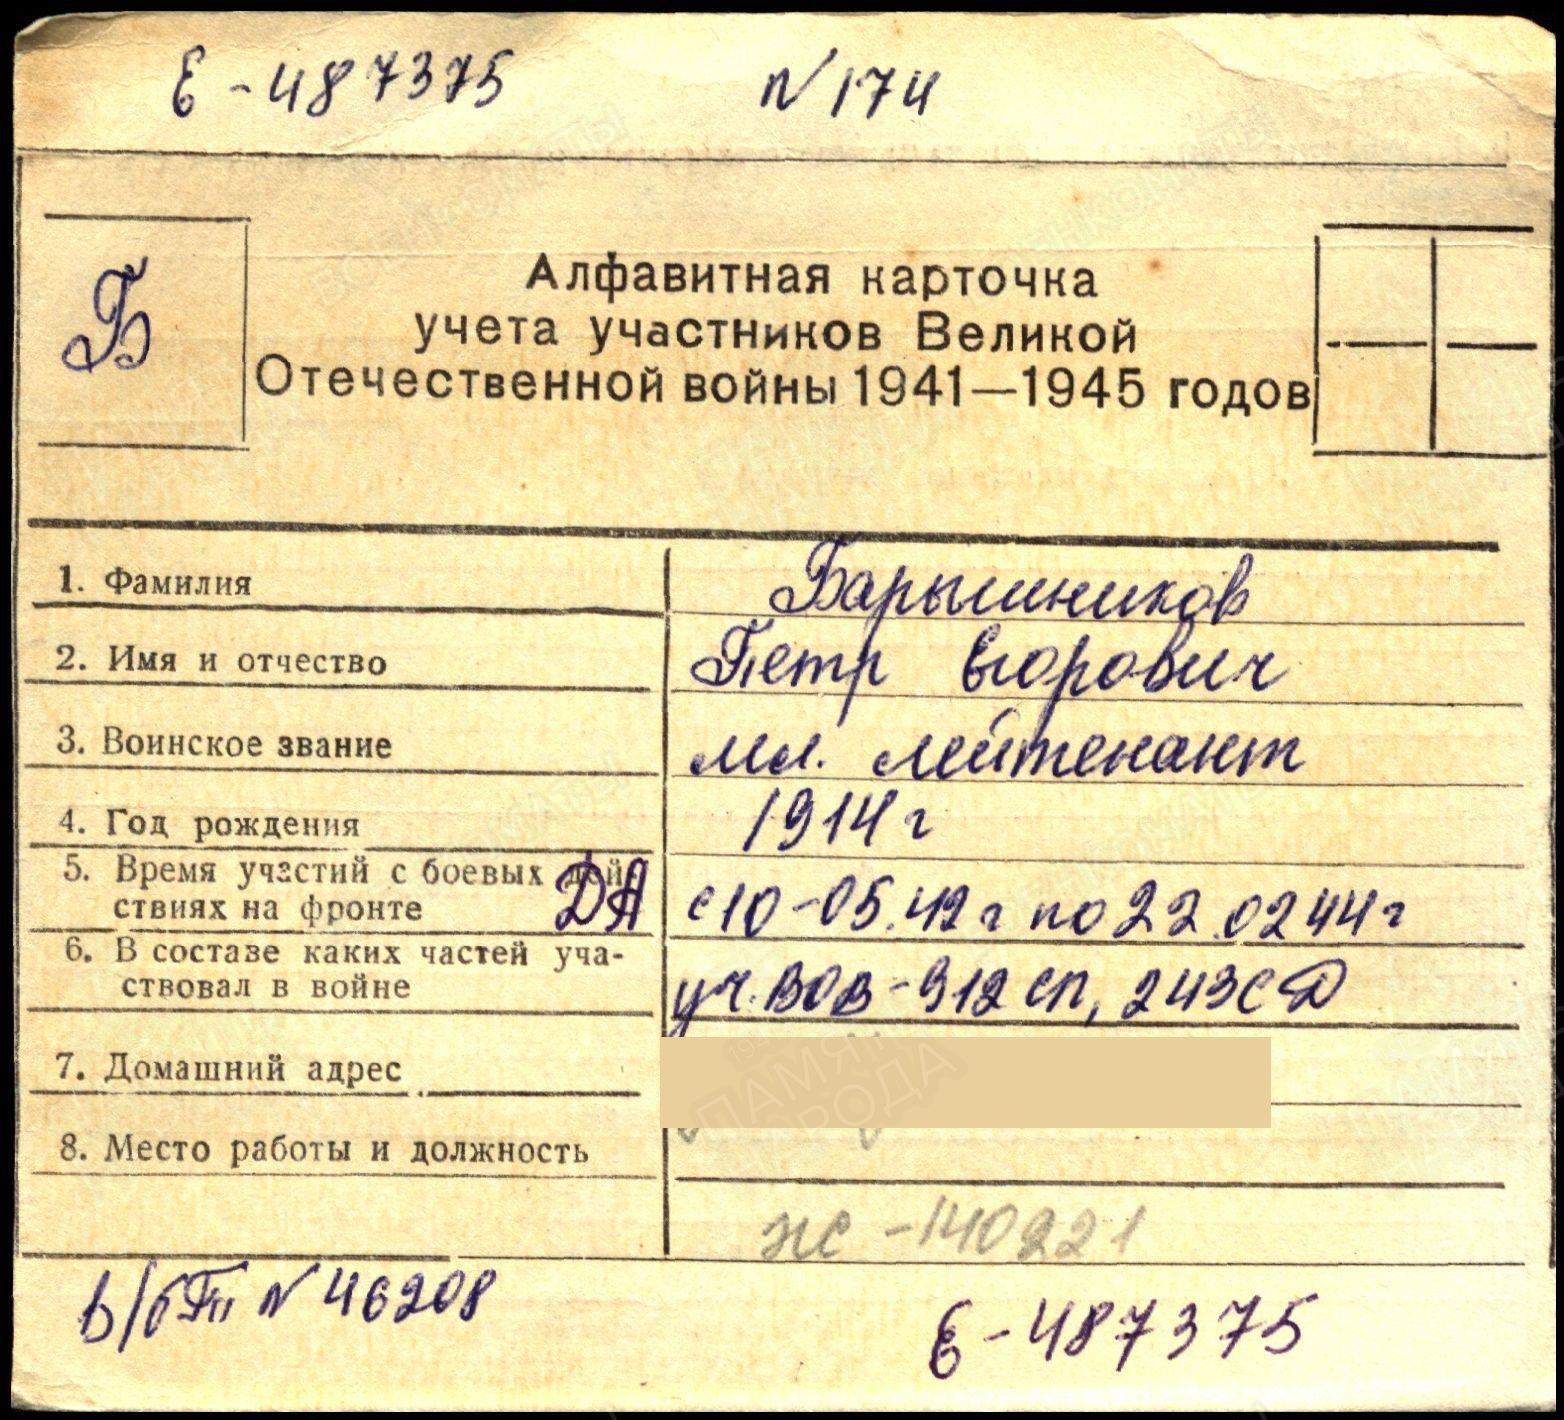 Е-487375 N 174
Б
Алфавитная карточка
учета участников Великой
Отечественной войны 1941—1945 годов
1. Фамилия Барышников
2. Имя и отчество Петр Егорович
3. Воинское звание мл. лейтенант
4. Год рождения 1914 г
5. Время участий с боевых дей-
ствиях на фронте ДА с 10-05.42 г по 22.02 44 г
6. В составе каких частей уча-
ствовал в войне уч. ВОВ - 912 СП, 243 СД
7. Домашний адрес
ПАМЯТЬ
НАРОДА
8. Место работы и должность
-140221
В/б N 46208
Е-487375